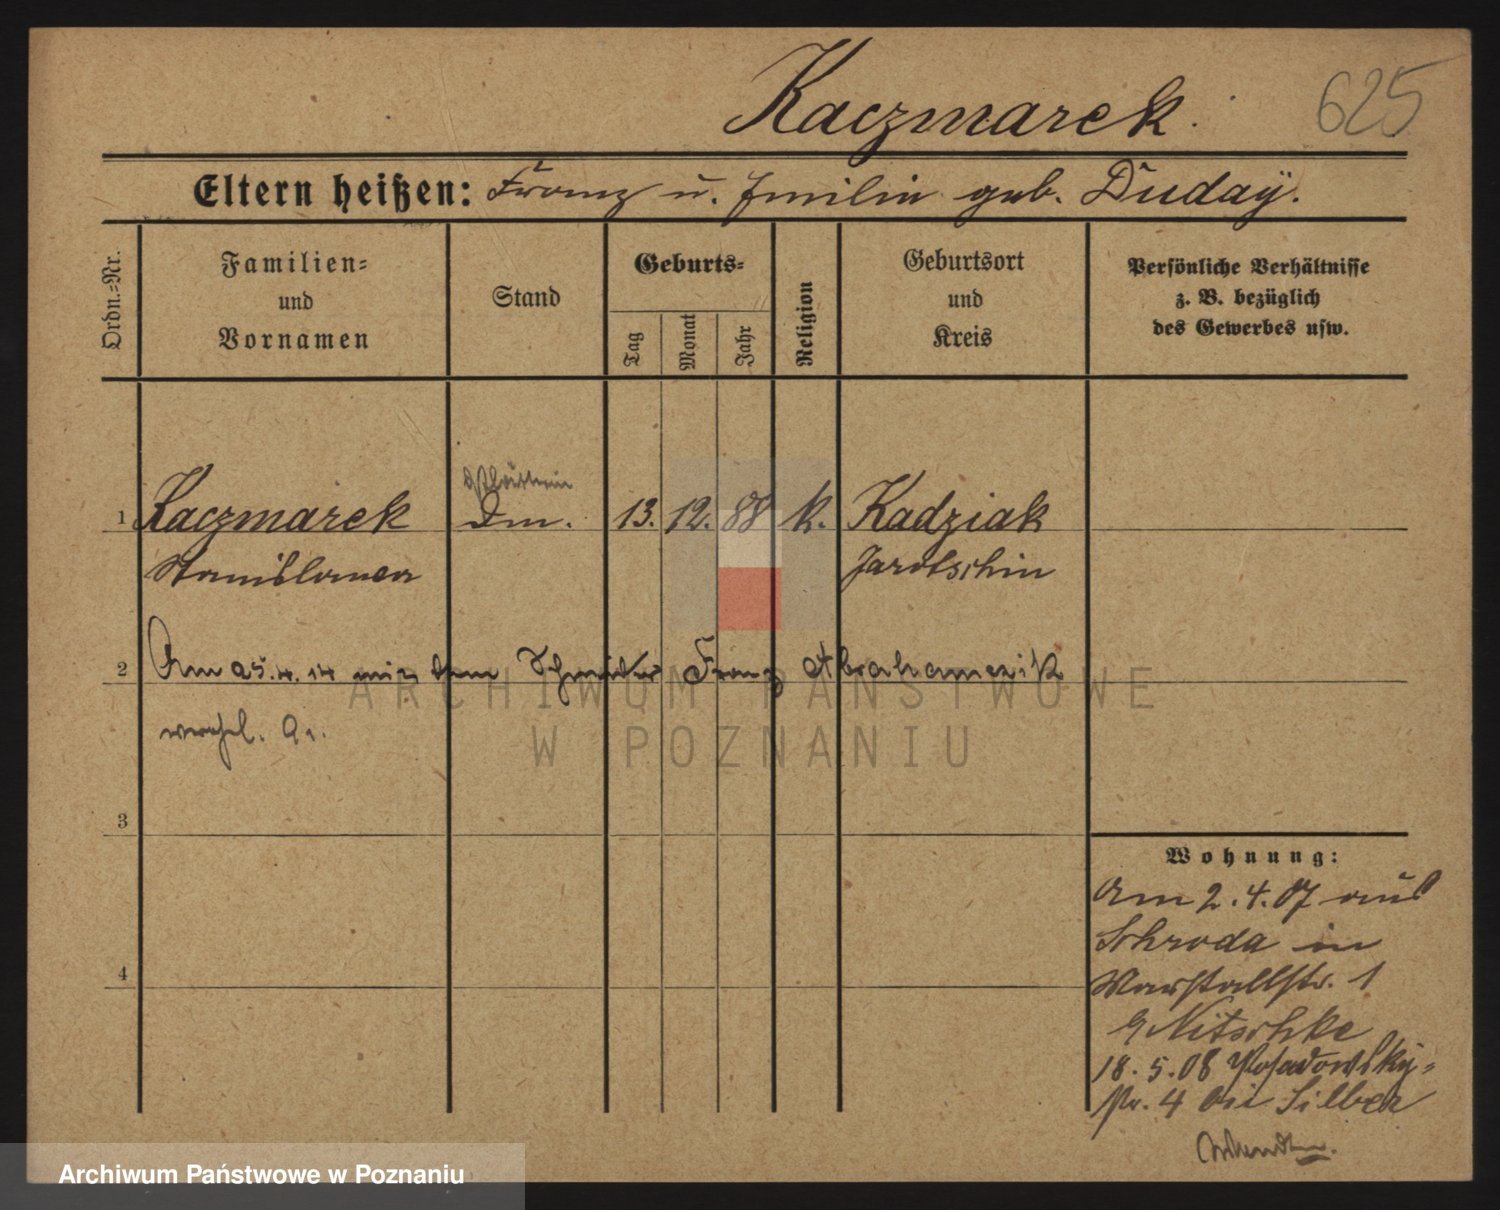 Kaczmarek.
625
Eltern heißen: Franz u. Emilie geb. Duday.
Ordn.-Nr.
Familien-
und
Vornamen
Stand
Geburts-
Tag
Monat
Jahr
Religion
Geburtsort
und
Kreis
Persönliche Verhältnisse
z. B. bezüglich
des Gewerbes usw.
1 Kaczmarek Dm. 13. 12. 88 k. Kadziak
Stanislawa Jarotschin
2 Am 25.4.14 mit dem Schneider Franz Abrahamczik
verehel.
3
4
Wohnung:
Am 2.4.07 aus
Schroda in
Marstallstr. 1
Nitschke
18.5.08 Posadowsky-
str. 4 bei Silber
ARCHIWUM PAŃSTWOWE
W POZNANIU
Archiwum Państwowe w Poznaniu